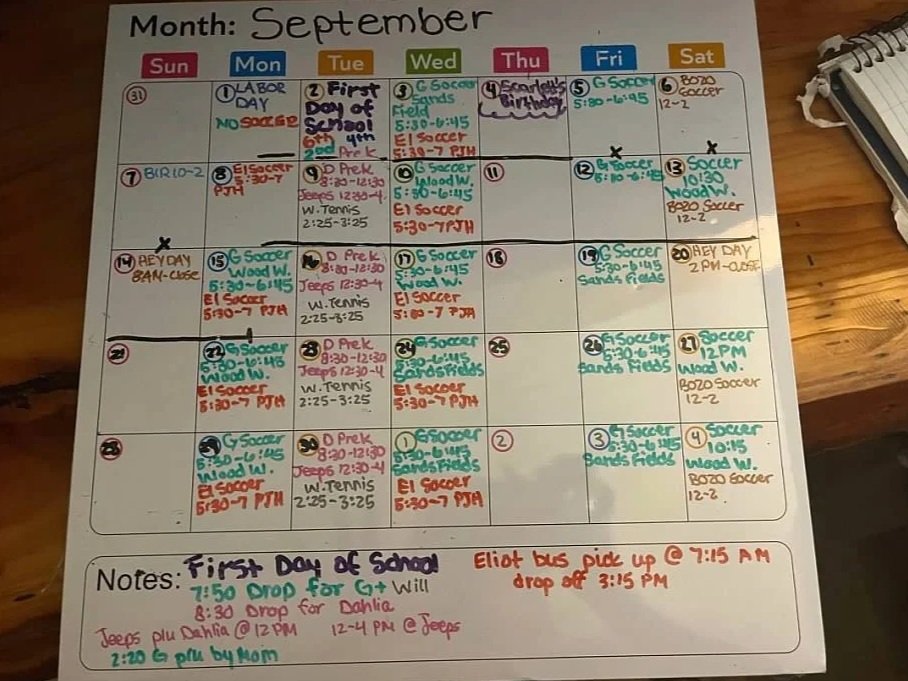 Month: September
Sun Mon Tue Wed Thu Fri Sat
31
1 LABOR
DAY
NO SOCCER
2 First
Day of
School
6th 4th
2nd PreK
3 G Soccer
Sands
Field
5:30-6:45
El Soccer
5:30-7 PJH
4 Scarlett's
Birthday
5 G Soccer
5:30-6:45
6 BOZO
Soccer
12-2
7
8 El Soccer
5:30-7
PJH
9 D PreK
8:30-12:30
Jeeps 12:30-4
W. Tennis
2:25-3:25
10 G Soccer
Wood W.
5:30-6:45
El Soccer
5:30-7 PJH
11
x
12 G Soccer
x
13 Soccer
10:30
Wood W.
BOZO Soccer
12-2
x
14 HEYDAY
8AM-CLOSE
15 G Soccer
Wood W.
5:30-6:45
El Soccer
5:30-7 PJH
16 D PreK
8:30-12:30
Jeeps 12:30-4
W. Tennis
2:25-3:25
17 G Soccer
5:30-6:45
Wood W.
El Soccer
5:30-7 PJH
18
19 G Soccer
5:30-6:45
Sands Fields
20 HEY DAY
2 PM-CLOSE
21
22 G Soccer
5:30-6:45
Wood W.
El Soccer
5:30-7 PJH
23 D PreK
8:30-12:30
Jeeps 12:30-4
W. Tennis
2:25-3:25
24 G Soccer
5:30-6:45
Sands Fields
El Soccer
5:30-7 PJH
25
26 G Soccer
5:30-6:45
Sands Fields
27 Soccer
12PM
Wood W.
BOZO Soccer
12-2
28
29 G Soccer
5:30-6:45
Wood W.
El Soccer
5:30-7 PJH
30 D PreK
8:30-12:30
Jeeps 12:30-4
W. Tennis
2:25-3:25
1 G Soccer
5:30-6:45
Sands Fields
El Soccer
5:30-7 PJH
2
3 G Soccer
5:30-6:45
Sands Fields
4 Soccer
10:15
Wood W.
BOZO Soccer
12-2
Notes: First Day of School
7:50 Drop for G+ Will
8:30 Drop for Dahlia
Jeeps p/u Dahlia @ 12 PM 12-4 PM @ Jeeps
2:20 G p/u by Mom
Eliot bus pick up @ 7:15 AM
drop off 3:15 PM